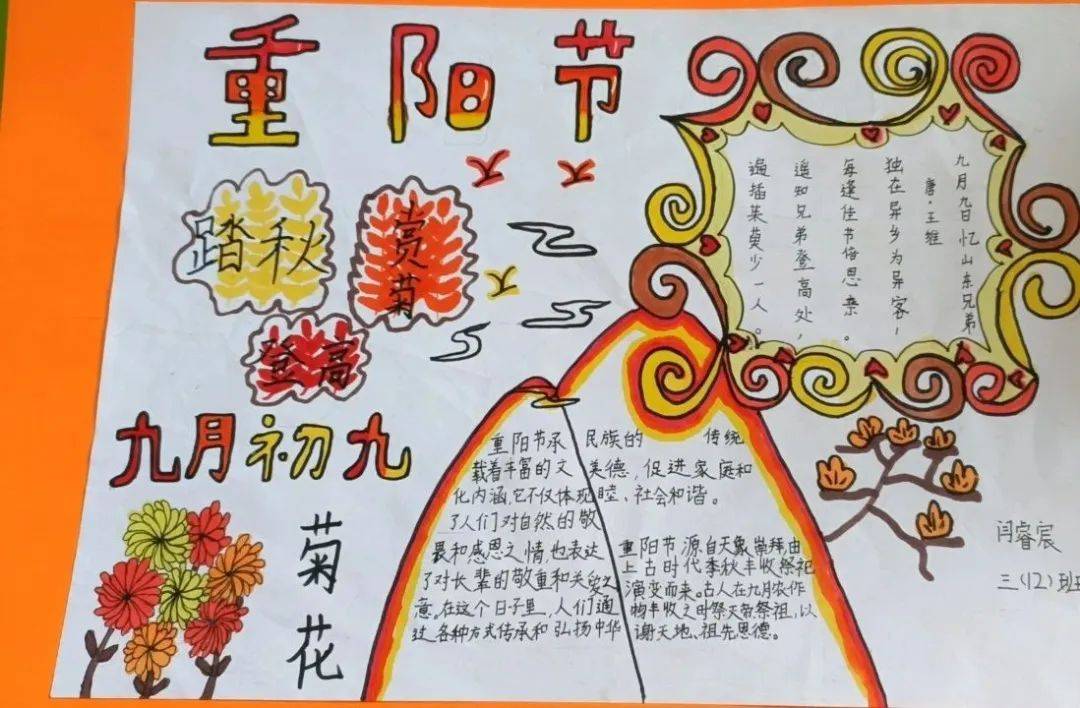 重阳节
踏秋
赏菊
登高
九月初九
菊花
九月九日忆山东兄弟
唐·王维
独在异乡为异客，
每逢佳节倍思亲。
遥知兄弟登高处，
遍插茱萸少一人。
重阳节承
载着丰富的文
化内涵,它不仅体现
了人们对自然的敬
畏和感恩之情,也表达
了对长辈的敬重和关爱之
意。在这个日子里,人们通
过各种方式传承和弘扬中华
民族的 传统
美德,促进家庭和
睦、社会和谐。
重阳节源自天象崇拜,由
上古时代季秋丰收祭祀
演变而来。古人在九月农作
物丰收之时祭天帝、祭祖,以
谢天地、祖先恩德。
闫睿宸
三(12)班